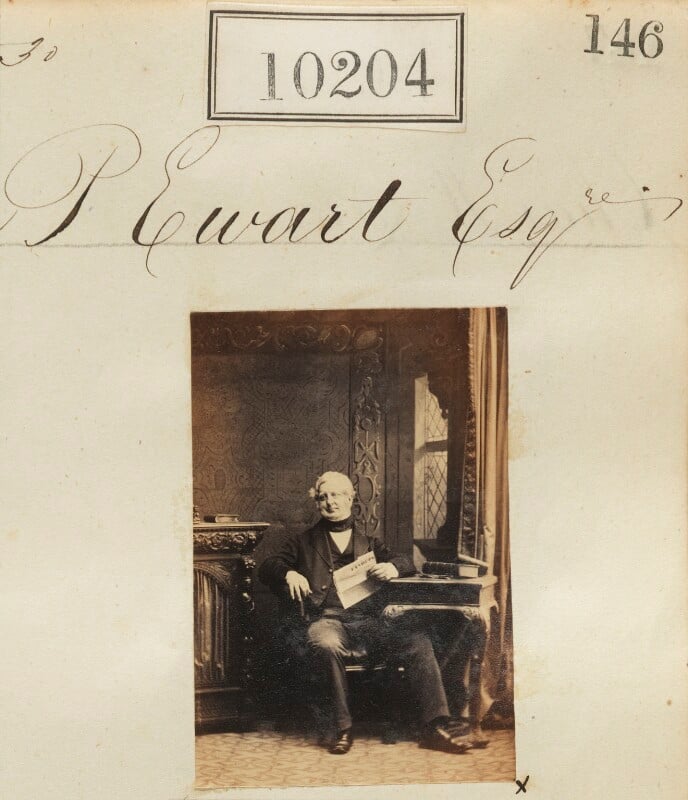 30
10204
146
P Ewart Esqre
x